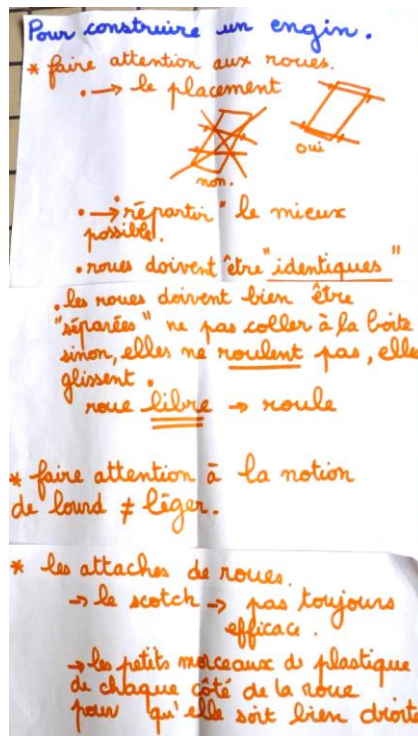 Pour construire un engin.
* faire attention aux roues.
. → le placement
oui
non.
. → "répartir" le mieux
possible.
. roues doivent être "identiques"
. les roues doivent bien être
"séparées" ne pas coller à la boîte
sinon, elles ne roulent pas, elles
glissent.
roue libre → roule
* faire attention à la notion
de lourd ≠ léger.
* les attaches de roues.
→ le scotch → pas toujours
efficace.
→ les petits morceaux de plastique
de chaque côté de la roue
pour qu'elle soit bien droite